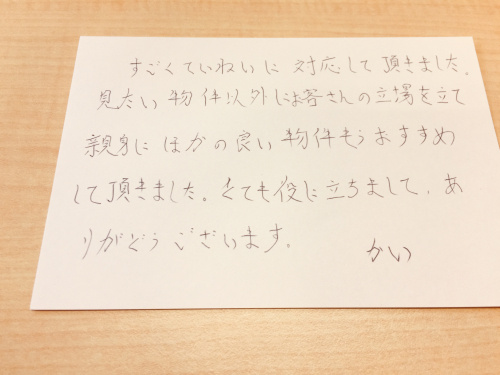 すごくていねいに 対応して頂きました。
見たい物件以外にお客さんの立場を立て
親身に ほかの良い物件もうおすすめ
して頂きました。とても役に立ちまして、あ
りがどうございます。
かい